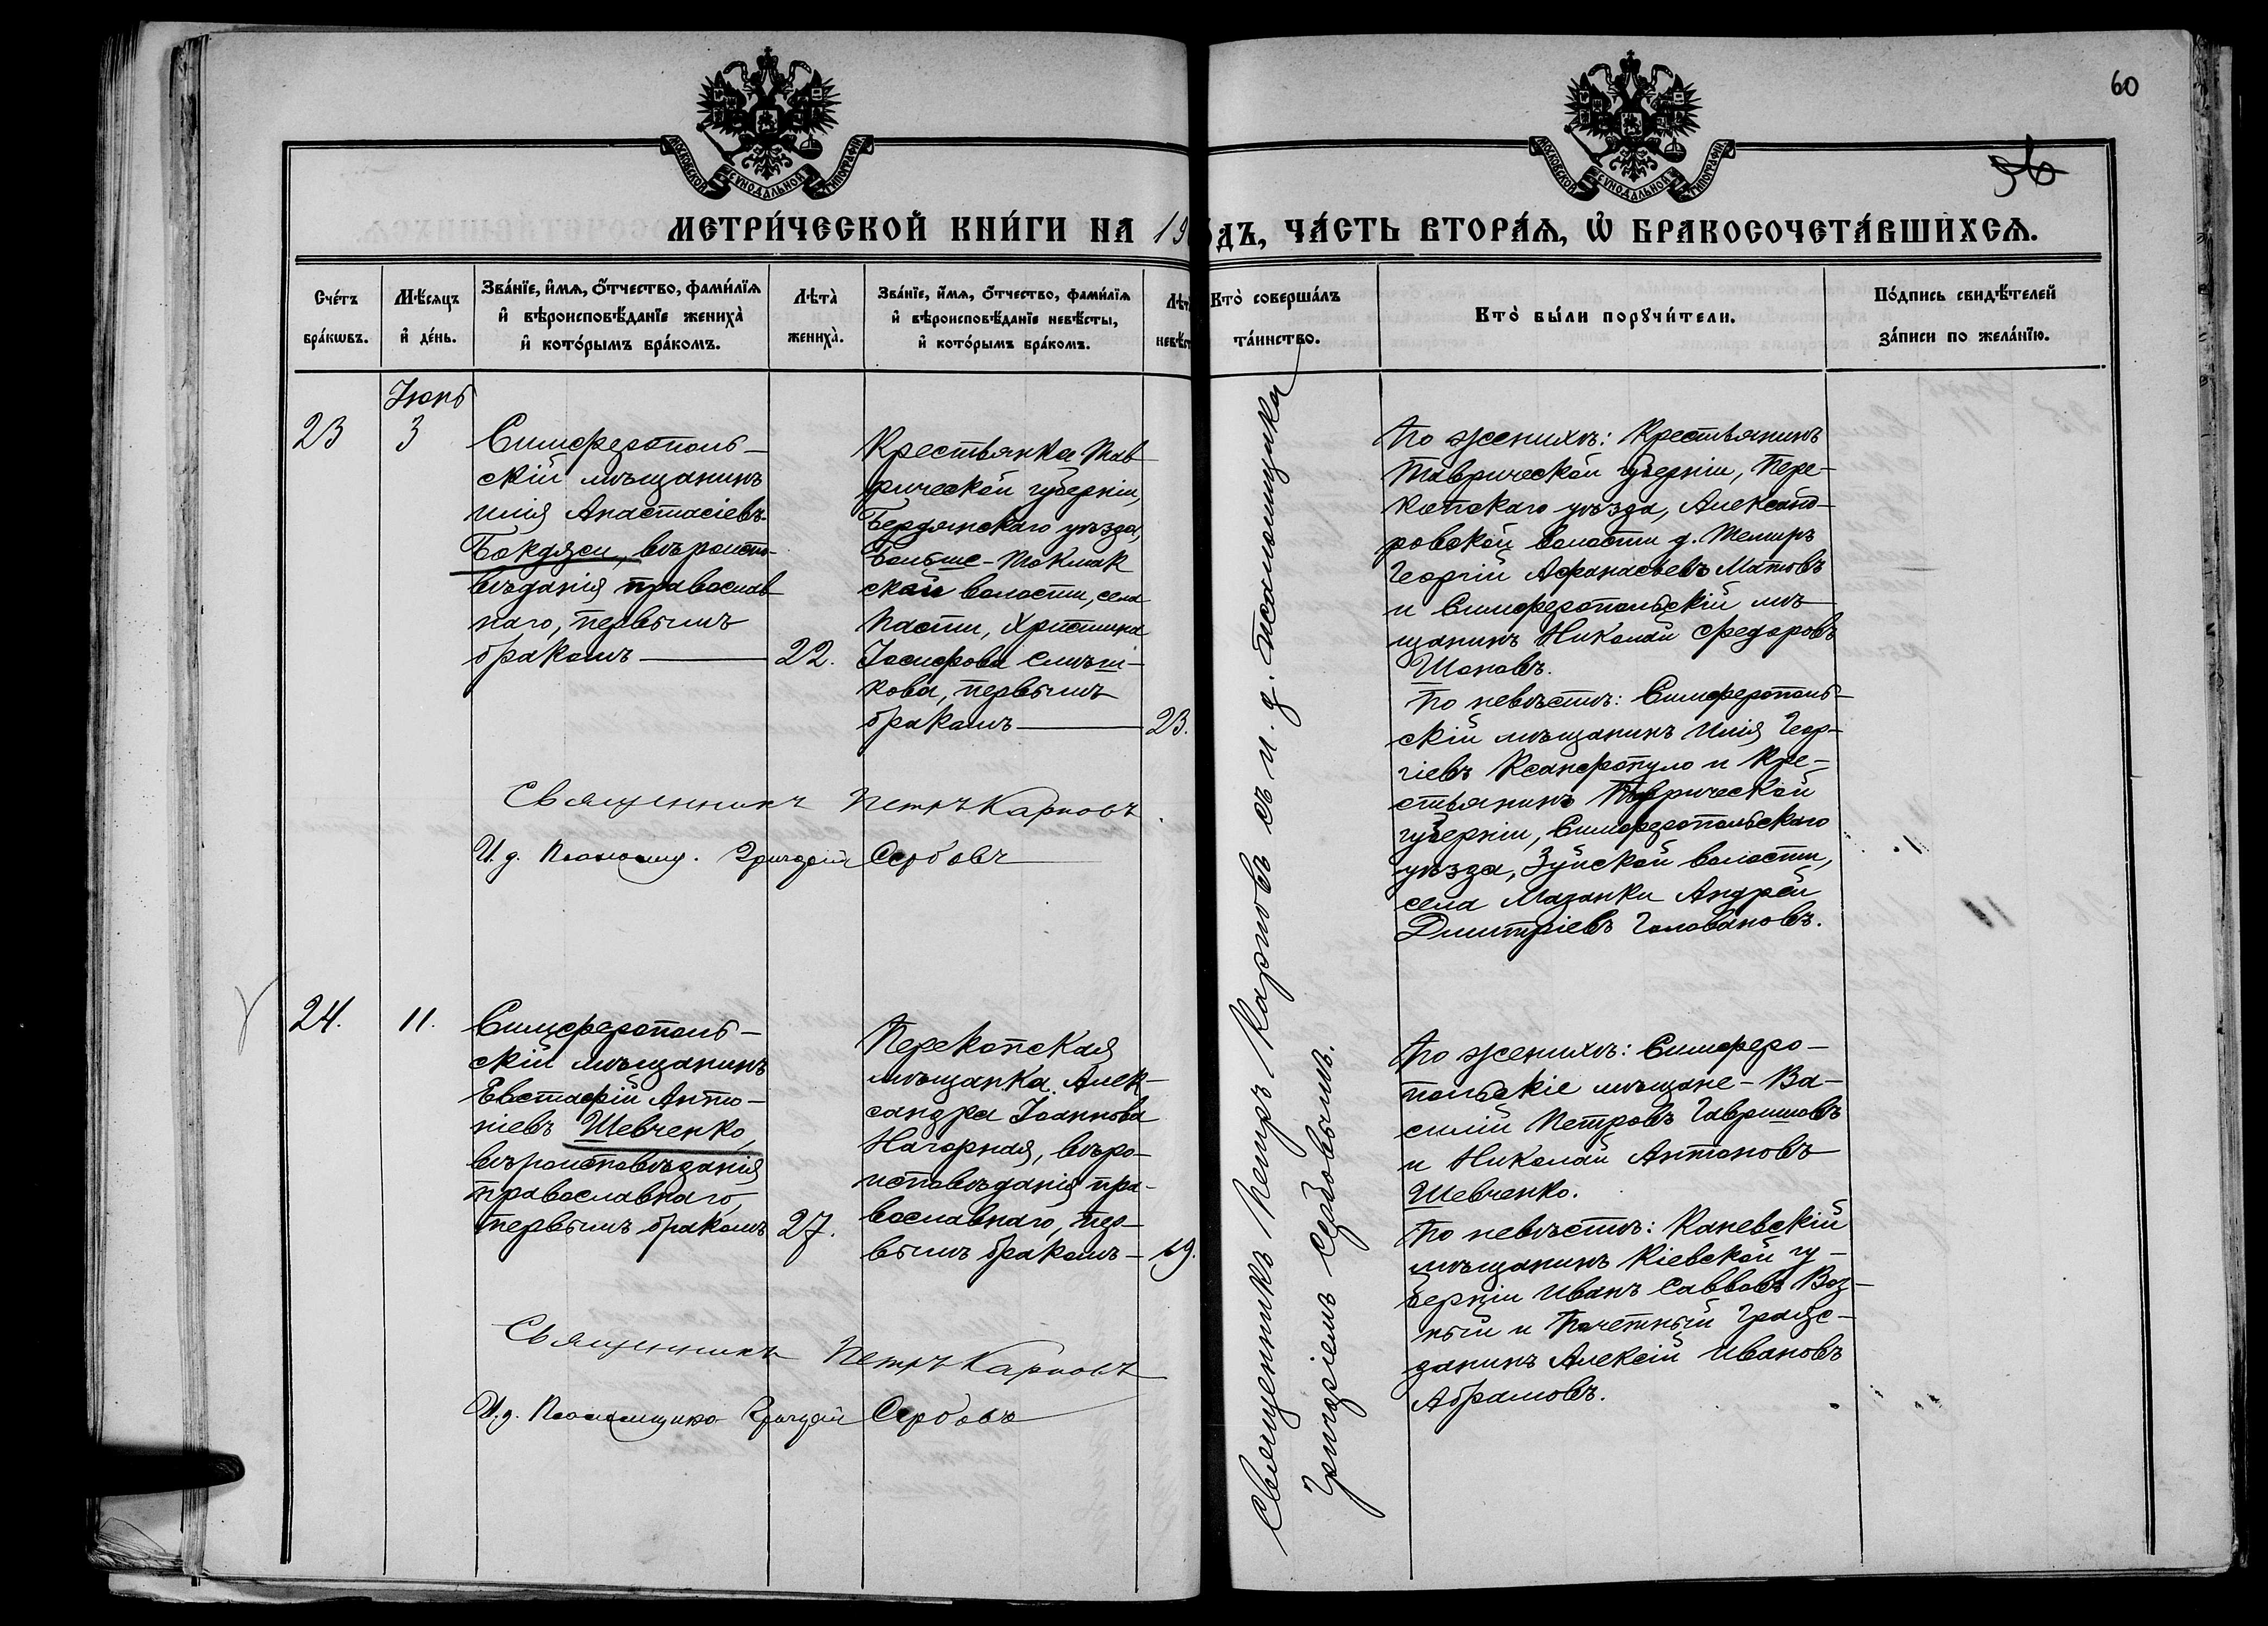 60
МОСКОВСКОЙ СѴНОДАЛЬНОЙ ТИПОГРАФІИ
МОСКОВСКОЙ СѴНОДАЛЬНОЙ ТИПОГРАФІИ
МЕТРИ́ЧЕСКОЙ КНИ́ГИ НА 19 ДЪ, ЧА́СТЬ ВТОРА́Ѧ, Ѡ҆ БРАКОСОЧЕТА́ВШИХСѦ.
Сче́тъ бра́кѡвъ.
Мѣ́сяцъ и҆ де́нь.
Зва́нїе, и҆́мѧ, ѻ҆́тчество, фами́лїѧ
и҆ вѣроисповѣ́данїе жениха̀
и҆ кото́рымъ бра́комъ.
Лѣта̀ жениха̀.
Зва́нїе, и҆́мѧ, ѻ҆́тчество, фами́лїѧ
и҆ вѣроисповѣ́данїе невѣ́сты,
и҆ кото́рымъ бра́комъ.
Лѣт
невѣст
Кто̀ соверша́лъ
та́инство.
Кто̀ бы́ли порꙋчи́тели.
По́дпись свидѣ́телей
за́писи по жела́нїю.
Іюнь
23
3
Симферополь-
скій мѣщанинъ
Илія Анастасіевъ
Бокдяси, вѣроиспо-
вѣданія православ
наго, первымъ
бракомъ
22.
Крестьянка Тав
рической губерніи,
Бердянскаго уѣзда,
Больше-Токмак
ской волости, села
Христина
Іосифова
кова, первымъ
бракомъ
23.
Священникъ Петръ Карповъ
И. д. Псаломщ. Григорій Сербовъ
Священникъ Петръ Карповъ съ и. д. псаломщика
Григоріемъ Сербовымъ.
По женихѣ: Крестьянинъ
Таврической губерніи, Пере-
копскаго уѣзда, Александ-
ровской волости д. Темиръ
Георгій Афанасьевъ
и Симферопольскій мѣ
щанинъ Николай Федоровъ
Шоповъ.
По невѣстѣ: Симферополь-
скій мѣщанинъ Илія Геор-
гіевъ Ксанфопуло и Кре-
стьянинъ Таврической
губерніи, Симферопольскаго
уѣзда, Зуйской волости,
села Мазанки Андрей
Дмитріевъ Головановъ.
24.
11.
Симферополь-
скій мѣщанинъ
Евстафій Анто-
ніевъ Шевченко,
вѣроисповѣданія
православнаго,
первымъ бракомъ
27.
Перекопская
мѣщанка Алек-
сандра Іоаннова
Нагорная, вѣро-
исповѣданія пра-
вославнаго, пер-
вымъ бракомъ
19.
Священникъ Петръ Карповъ
И. д. Псаломщика Григорій Сербовъ
По женихѣ: Симферо-
польскіе мѣщане - Ва-
силій Петровъ Гавришовъ
и Николай Антоновъ
Шевченко.
По невѣстѣ: Каневскій
мѣщанинъ Кіевской гу-
берніи Иванъ Савовъ Воз-
ный и Почетный Граж-
данинъ Алексій Ивановъ
Абрамовъ.